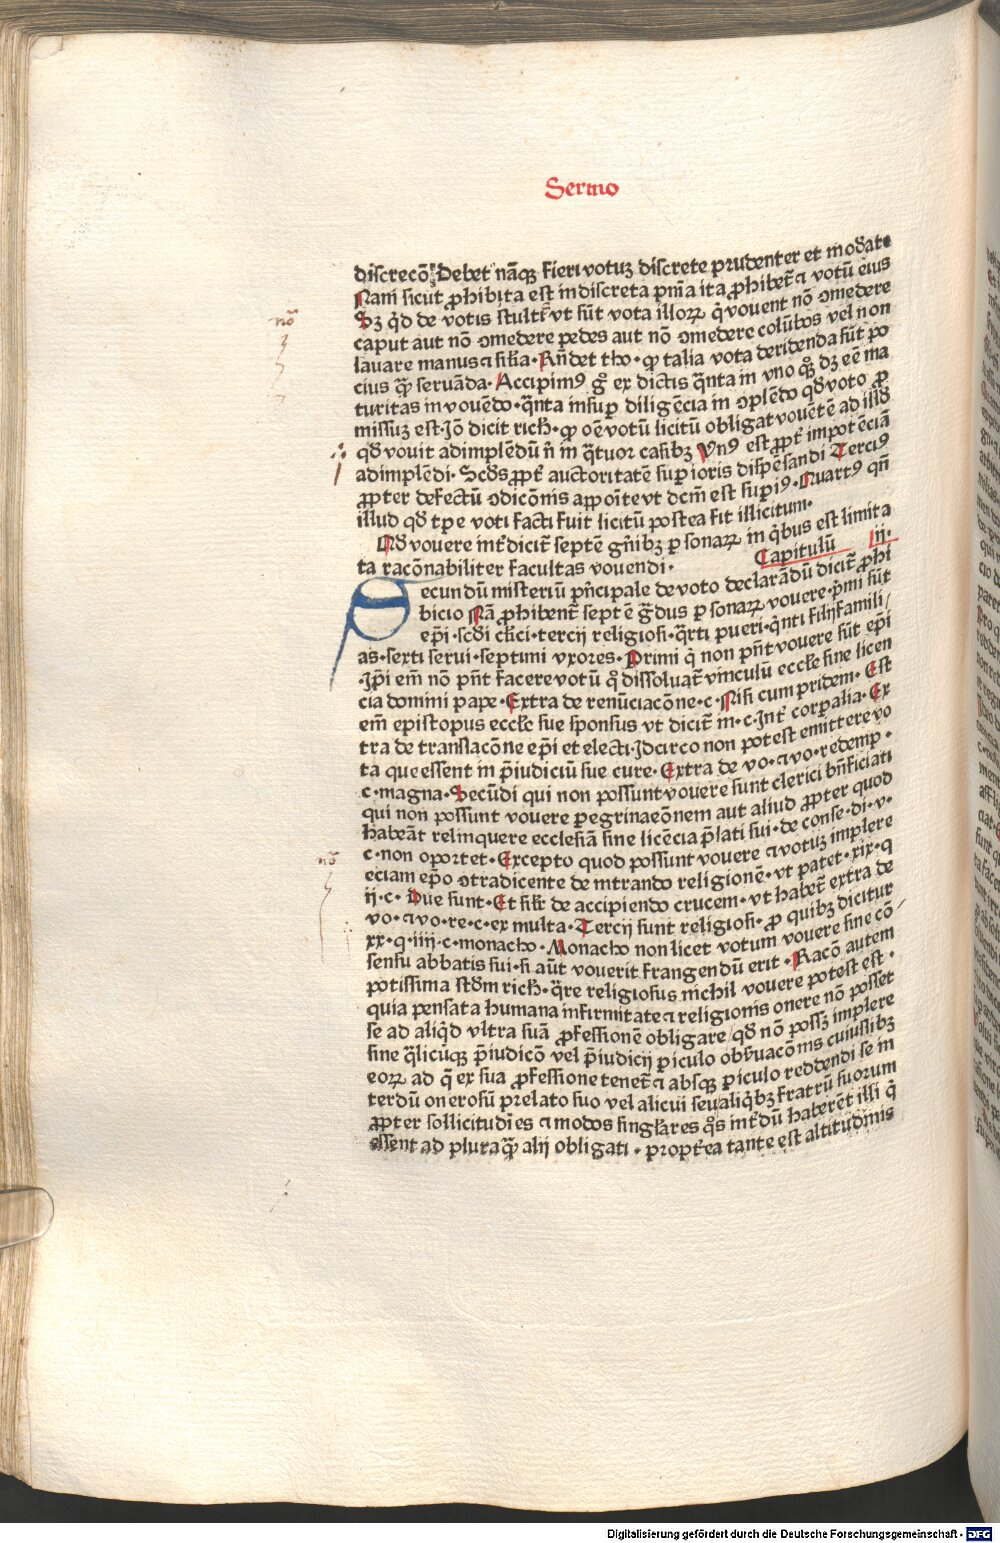 Sermo
discrecõ. Debet nãqꝫ fieri votuꝫ discrete prudenter et moďate
Nam sicut ꝓhibita est indiscreta p̃mia ita ꝓhibet᷑ ⁊ votũ eius
Sꝫ q̇d de votis stultꝭ vt sũt vota illoꝝ q̇ vouent nõ ꝯmedere
caput aut nõ ꝯmedere pedes aut nõ ꝯmedere colũbos vel non
lauare manus ⁊ sil̃ia. Rñdet tho. ꝙ talia vota deridenda sũt po
cius qꝫ̃ seruãda. Accipimꝰ gͦ ex dictis q̃nta in vno qͦqꝫ dꝫ eẽ ma
turitas in vouẽdo. q̃nta insuꝑ diligẽcia in ꝯplẽdo qď voto ꝓ
missuꝫ est. Jõ dicit rich̃. ꝙ oẽ votũ licitũ obligat vouẽtẽ ad illď
qď vouit adimplẽdũ ñ in q̃tuor casibꝫ Vnꝰ est ꝓpt᷑ impotẽciã
adimplẽdi. Scďs ꝓpt᷑ auctoritatẽ suꝑioris dispẽsandi Terciꝰ
ꝓpter defectũ ꝯdicõnis appoĩte vt dcm̃ est suꝑiꝰ. Quartꝰ qñ
illud qď tꝑe voti facti fuit licitũ postea fit illicitum.
Qď vouere int᷑dicit᷑ septẽ gñibꝫ ꝑsonaꝝ in q̇bus est limita
ta racõnabiliter facultas vouendi. Capitulũ ij.
Secundũ misteriũ pñcipale de voto declarãdũ dicit᷑ ꝓhi
bicio Nã ꝓhibent᷑ septẽ g̃dus ꝑsonaꝝ vouere. p̃mi sũt
ep̃i. scďi cl̃ici. tercij religiosi. q̃rti pueri. q̃nti filij famili/
as. sexti serui. septimi vxores. Primi q̇ non pñt vouere sũt ep̃i
.Jp̃i em̃ nõ pñt facere votũ qͦ dissoluat᷑ vinculũ eccl̃e sine licen
cia domini pape. Extra de renũciacõne. c. Nisi cum pridem. Est
em̃ epistopus eccl̃e sue sponsus vt dicit᷑ in. c. Jnt᷑ corꝑalia. Ex
tra de translacõne ep̃i et electi. Jdcirco non potest emittere vo
ta que essent in p̃iudiciũ sue cure. Extra de vo. ⁊ vo. redemp.
c. magna. Secũdi qui non possunt vouere sunt clerici bñficiati
qui non possunt vouere ꝑegrinaeõnem aut aliud ꝓpter quod
habeãt relinquere ecclesiã sine licẽcia p̃lati sui. de conse. di. v.
c. non oportet. Excepto quod possunt vouere ⁊ votuꝫ implere
eciam ep̃o ꝯtradicente de intrando religionẽ. vt patet. xix. q
ij. c. Due sunt. Et sil̃r de accipiendo crucem. vt habet᷑ extra de
vo. ⁊ vo. re. c. ex multa. Tercij sunt religiosi. ꝓ quibꝫ dicitur
xx. q. iiij. c. monacho. Monacho non licet votum vouere sine cõ/
sensu abbatis sui. si aũt vouerit frangendũ erit. Racõ autem
potissima scďm rich̃. q̃re religiosus nichil vouere potest est.
quia pensata humana infirmitate ⁊ religionis onere nõ posset
se ad aliq̇d vltra suã ꝓfessionẽ obligare qď nõ possꝫ implere
sine q̃licũqꝫ p̃iudicõ vel p̃iudicij ꝑiculo obẽruacõnis cuiuslibꝫ
eoꝝ ad q̃ ex sua ꝓfessione tenet᷑ ⁊ absqꝫ ꝑiculo reddendi se in
terdũ onerosũ prelato suo vel alicui seu aliq̇bꝫ fratrũ suorum
ꝓpter sollicitudĩes ⁊ modos singl̃ares qͦs int᷑dũ haberẽt illi q̇
essent ad plura qꝫ̃ alij obligati. propt᷑ea tante est altitudinis
nõ
nõ
Digitalisierung gefördert durch die Deutsche Forschungsgemeinschaft - DFG